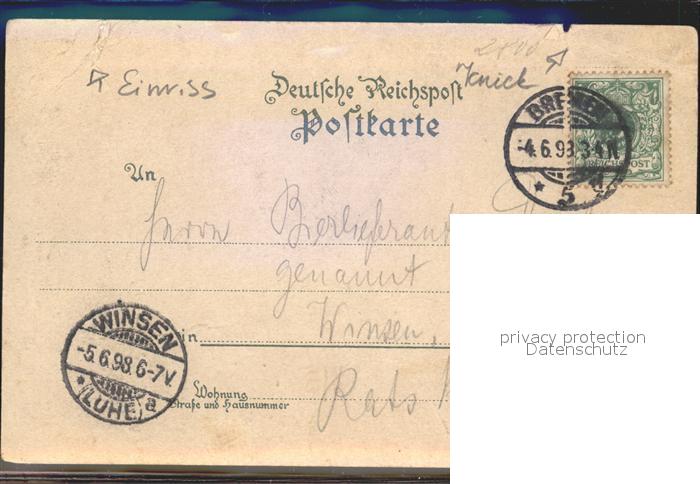 Einriss
Knick
Deutsche Reichspost
Postkarte
BREMEN
-4.6.98.3-4N
* 5 *
REICHSPOST
An
Herrn
genannt
Winsen
in
WINSEN
-5.6.98.6-7V.
* (LUHE) a
Wohnung
Straße und Hausnummer
Rats
privacy protection
Datenschutz